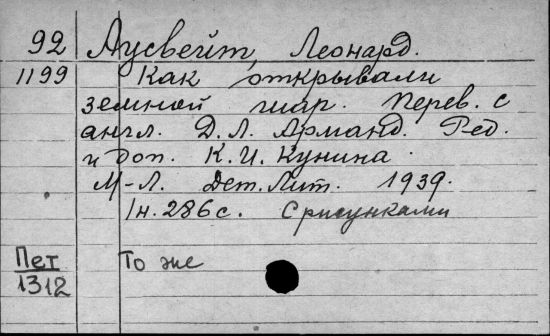 92 Аусвейт, Леонард.
1199 Как открывали
земной шар. Перев. с
англ. Д.Л. Арманд. Ред.
и доп. К.И. Кунина.
М-Л. Дет. Лит. 1939.
1н. 286 с. С рисунками
Пет То же
1312